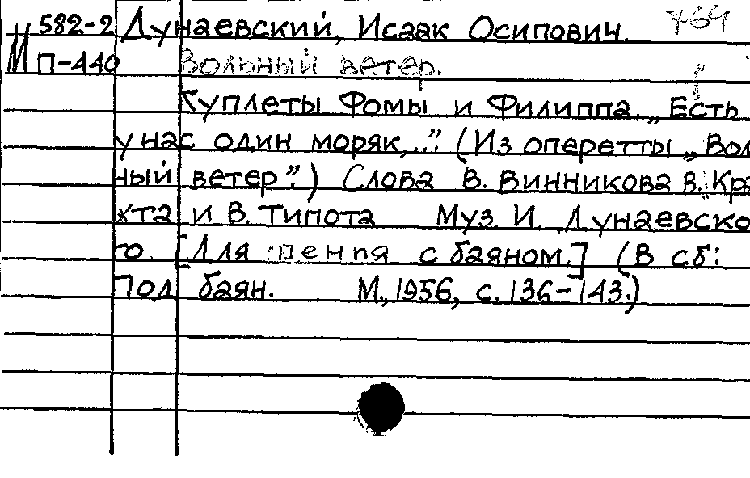 М 582-2 Дунаевский, Исаак Осипович. 764
П-440 Вольный ветер.
Куплеты Фомы и Филиппа „Есть
у нас один моряк,..". (Из оперетты „Вол
ный ветер".) Слова В. Винникова В. Кра
хта и В. Типота Муз. И. Дунаевско
го. [Для пения с баяном.] (В сб:
Под баян. М., 1956, с. 136-143.)